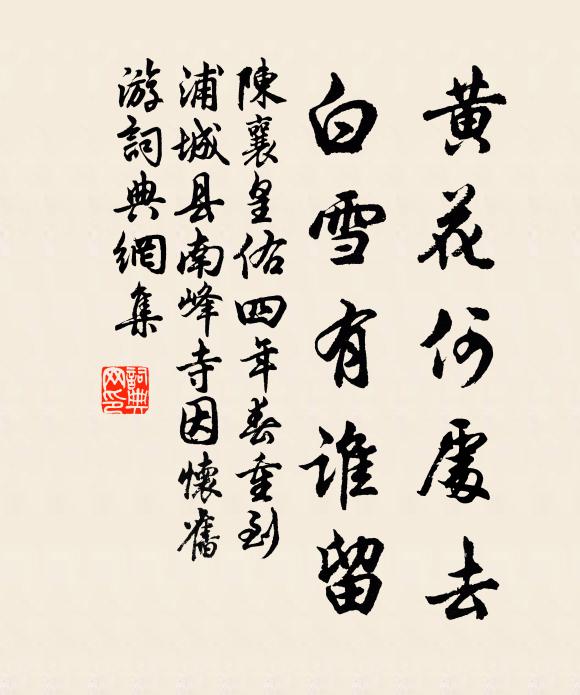 黃花何處去
白雪有誰留
陳襄皇佑四年春重到
浦城县南峰寺因懷舊
游詞典網集
詞典網印